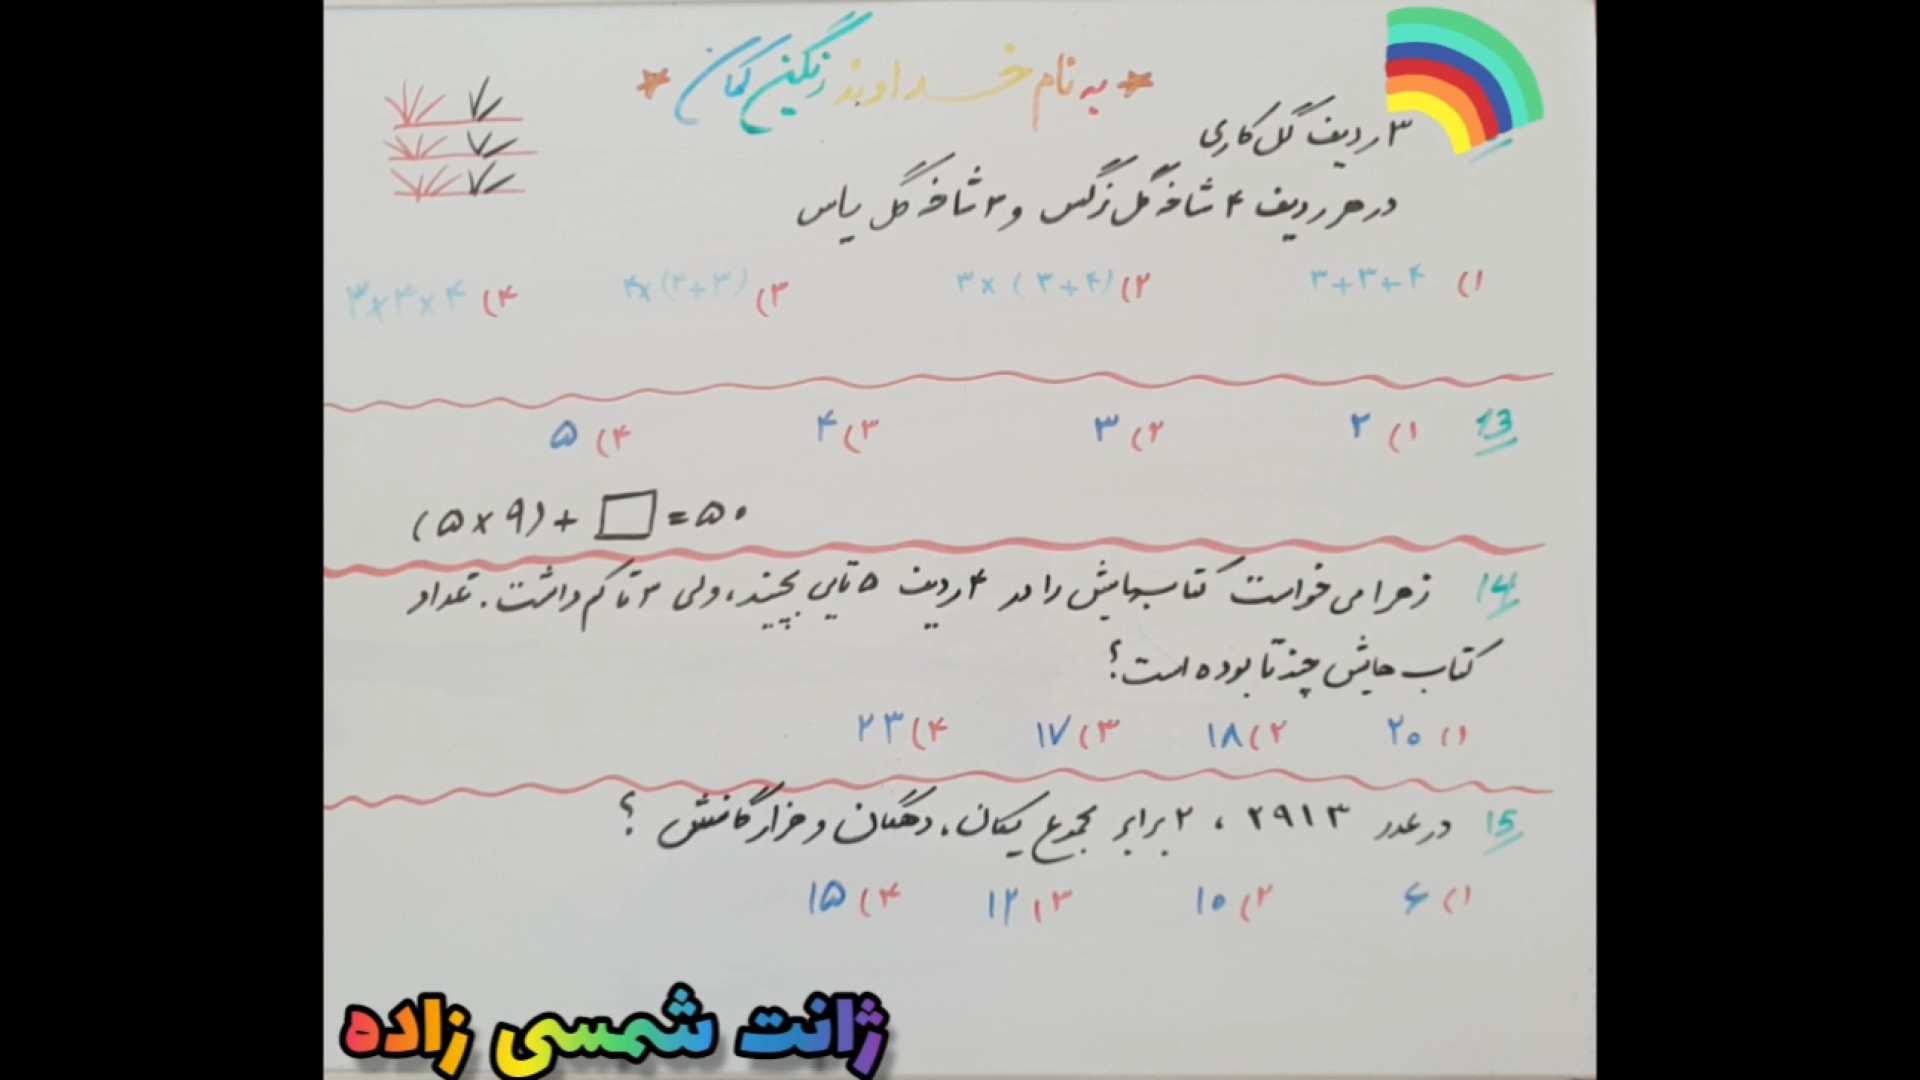 به نام خداوند رنگین کمان
۳ ردیف گل کاری
در هر ردیف ۴ شاخه گل نرگس و ۳ شاخه گل یاس
۱) ۳+۳+۴ ۲) ۳×(۳+۴) ۳) ۴×(۳+۳) ۴) ۳×۳×۴
13 ۱) ۲ ۲) ۳ ۳) ۴ ۴) ۵
(۵×۹)+□=۵۰
14 زهرا می خواست کتابهایش را در ۴ ردیف ۵ تایی بچیند، ولی ۳ تا کم داشت. تعداد
کتاب هایش چند تا بوده است؟
۱) ۲۰ ۲) ۱۸ ۳) ۱۷ ۴) ۲۳
15 در عدد ۲۹۱۳ ، ۲ برابر مجموع یکان، دهگان و هزارگانش ؟
۱) ۶ ۲) ۱۰ ۳) ۱۲ ۴) ۱۵
ژانت شمسی زاده